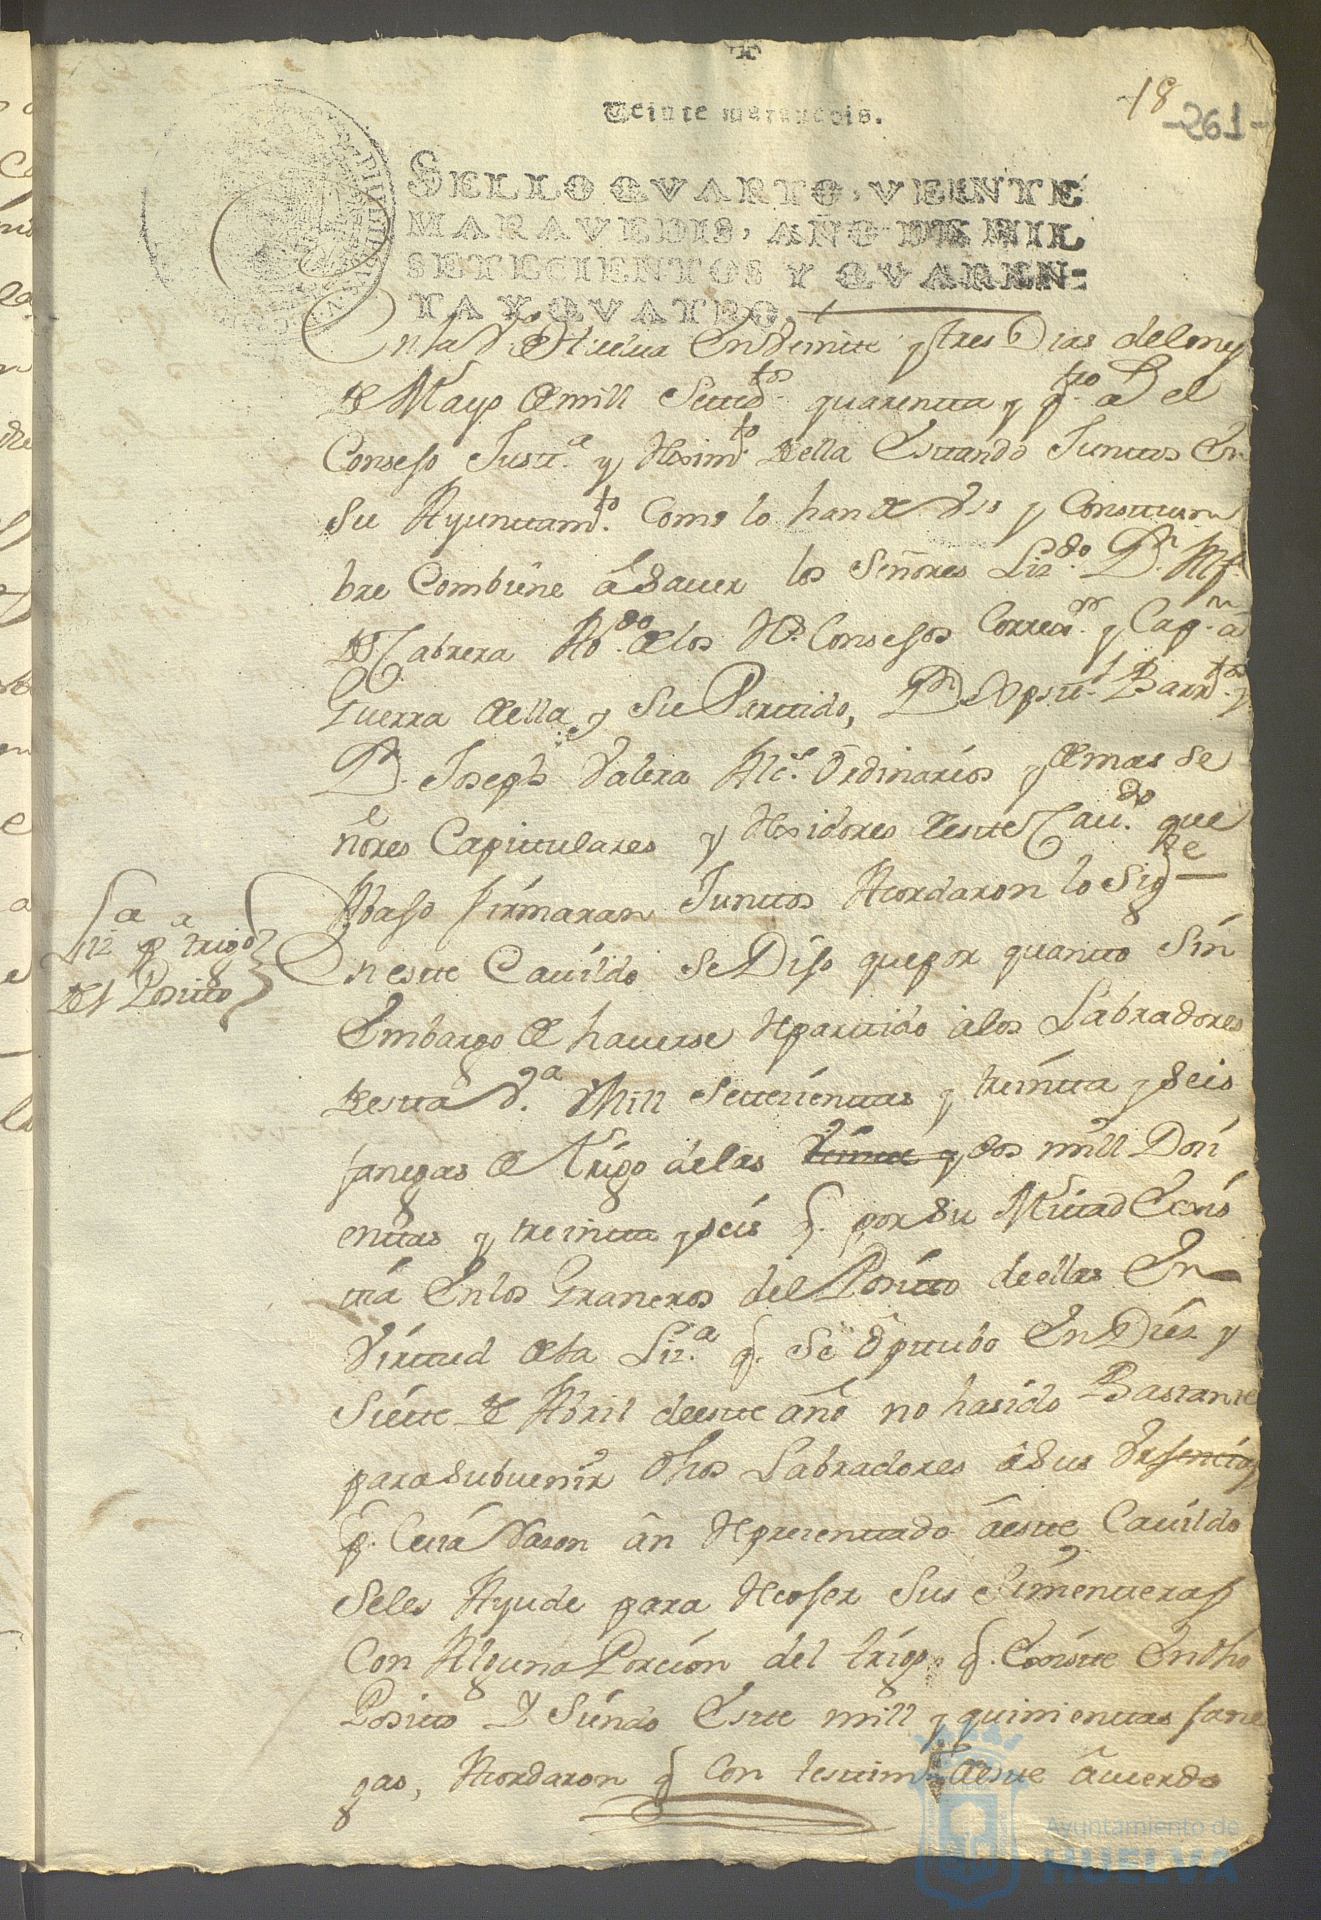 18
-261-
Veinte maravedis.
SELLO QVARTO, VEINTE
MARAVEDIS, AÑO DE MIL
SETECIENTOS Y QVAREN-
TA Y QVATRO.
En la Vª de Huelva En Veinte y tres Dias del mes
de Mayo de mill Settez.tos quarenta y q.tro a.s el
Consejo Just.ª y Reximi.to della Estando Juntos En
Su Ayuntam.to Como lo han de Uso y Constum
bre Combiene â Saver los Señores Liz.do D.n
de Cabrera Ab.do de los R.s Consejos Correx.or y Cap.n a
Guerra della y Su Partido, D.n Barr.tos y
D.n Joseph Valera Alc.es Ordinarios y demas Se
ñores Capitulares y Rexidores deste Cav.do que
Abajo firmaran Juntos Acordaron lo Sig.te
Liz.ª p.ª trigo
del Posito
En este Cavildo Se Dijo que por quanto Sin
Embargo de haverse Repartido a los Labradores
desta V.ª Mill Setecientas y treinta y Seis
fanegas de Trigo de las y dos mill Doci
entas y treinta y seis q. por Su Mitad Exis
tiá En los Graneros del Posito de ellas En
Virtud de la Liz.ª q. Se Obtubo En Diez y
Siete de Abril de este año no ha sido Bastante
para Subvenir dhos Labradores â Sus Urjencias
q. Cuia Razon ân Representado â este Cavildo
Se les Ayude para Recojer Sus Simenteras
Con Alguna Porcion del trigo q. Existe En dho
Posito Y Siendo Este mill y quinientas fane
gas, Acordaron q Con testim.º deste âcuerdo
Ayuntamiento de
HUELVA